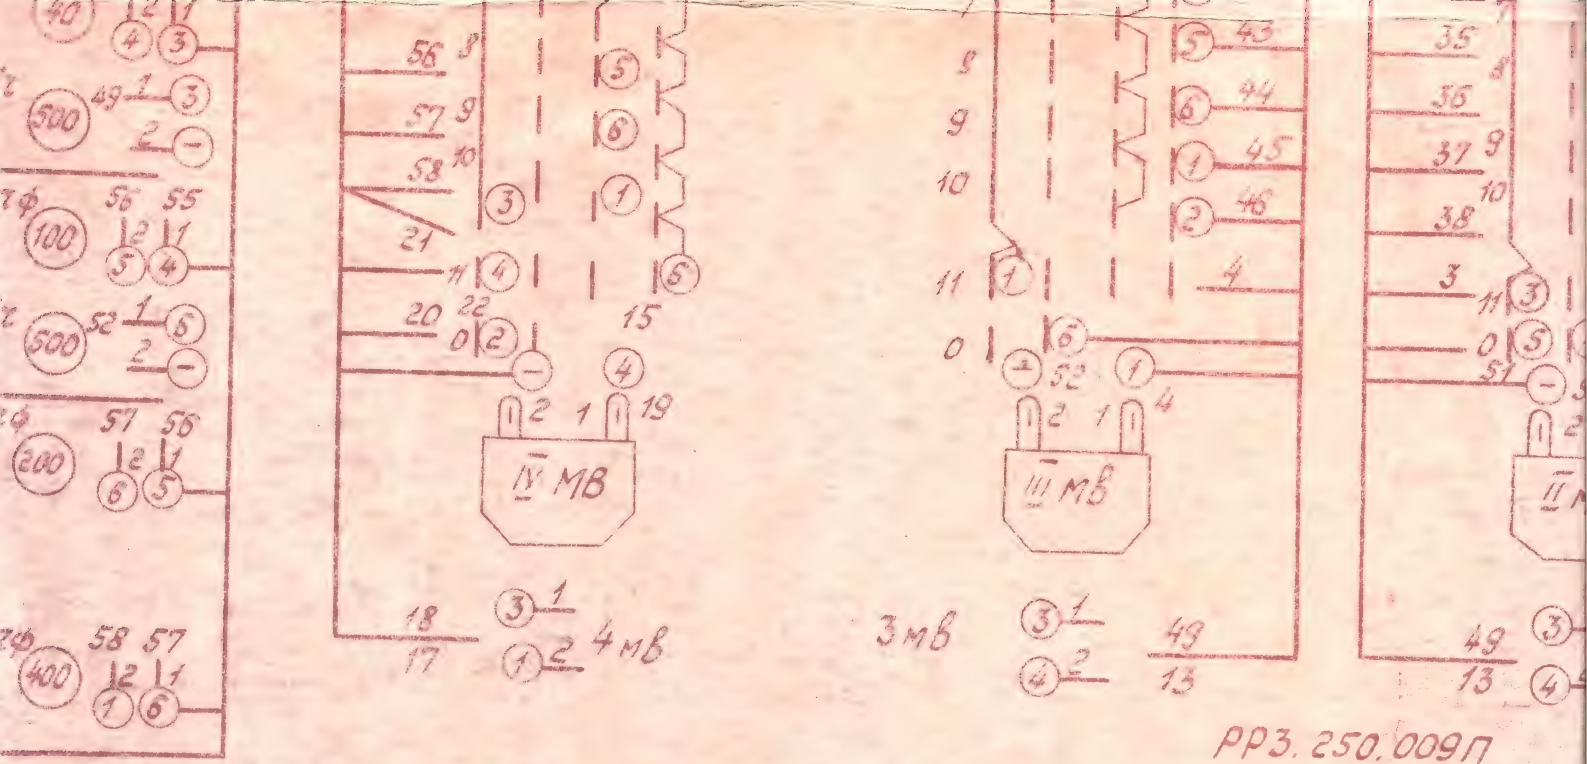 40 2 1
4 3
49 1 3
500
2 −
56 55
100 2 1
5 4
52 1 6
500
2 −
57 56
200 2 1
6 5
58 57
400 2 1
1 6
56 8
5
57 9
6
58 10
3 1
21
11 4
6
20 22
0 2
15
− 4
2 1 19
IV МВ
3 1
18
17
1 2
4 МВ
8
5 43
9
6 44
10
1 45
2 46
11
1
4
0
6
− 52
1
2 1 4
III МВ
3 МВ
3 1
4 2
49
13
7
35
8
36
37 9
10
38
3 11 3
0 5
51 −
2
II
3
49
13
4
РР3.250.009П